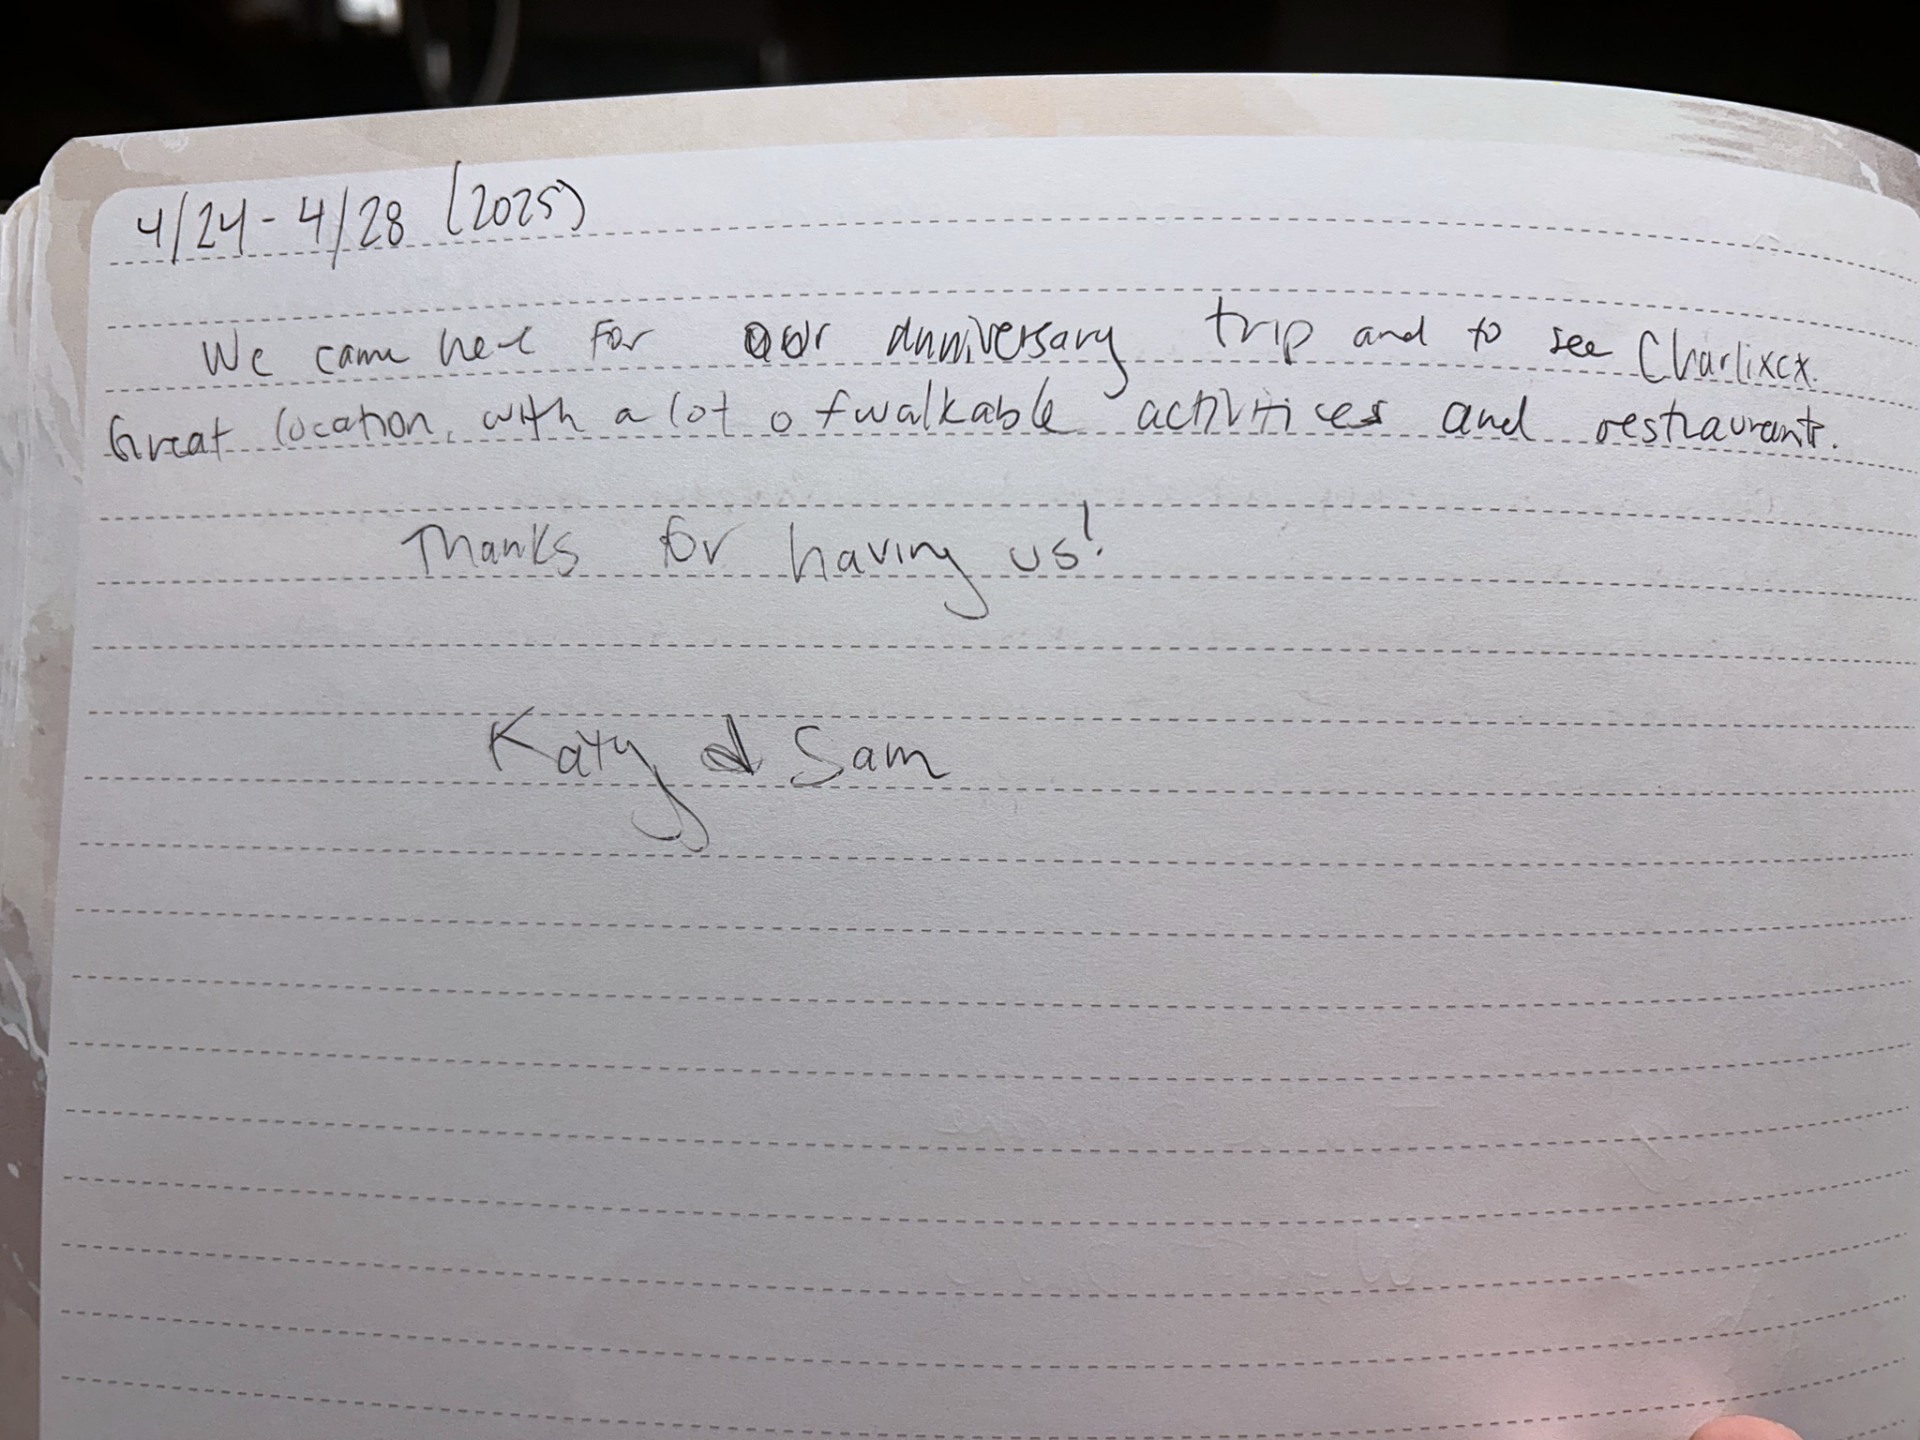 4/24 - 4/28 (2025)
We came here for our anniversary trip and to see Charlixcx.
Great location, with a lot of walkable activitices and restraurants.
Thanks for having us!
Katy & Sam